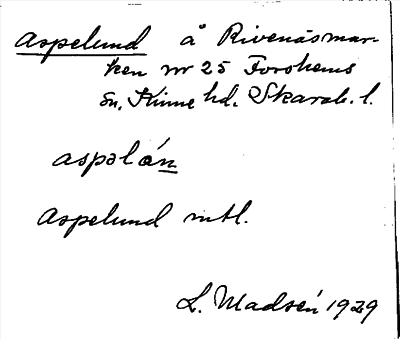 Aspelund å Rivenäsmar-
ken nr 25 Forshems
sn, Kinne hd. Skarab. l.
aspəlán
Aspelund mtl.
L. Madsén 1929